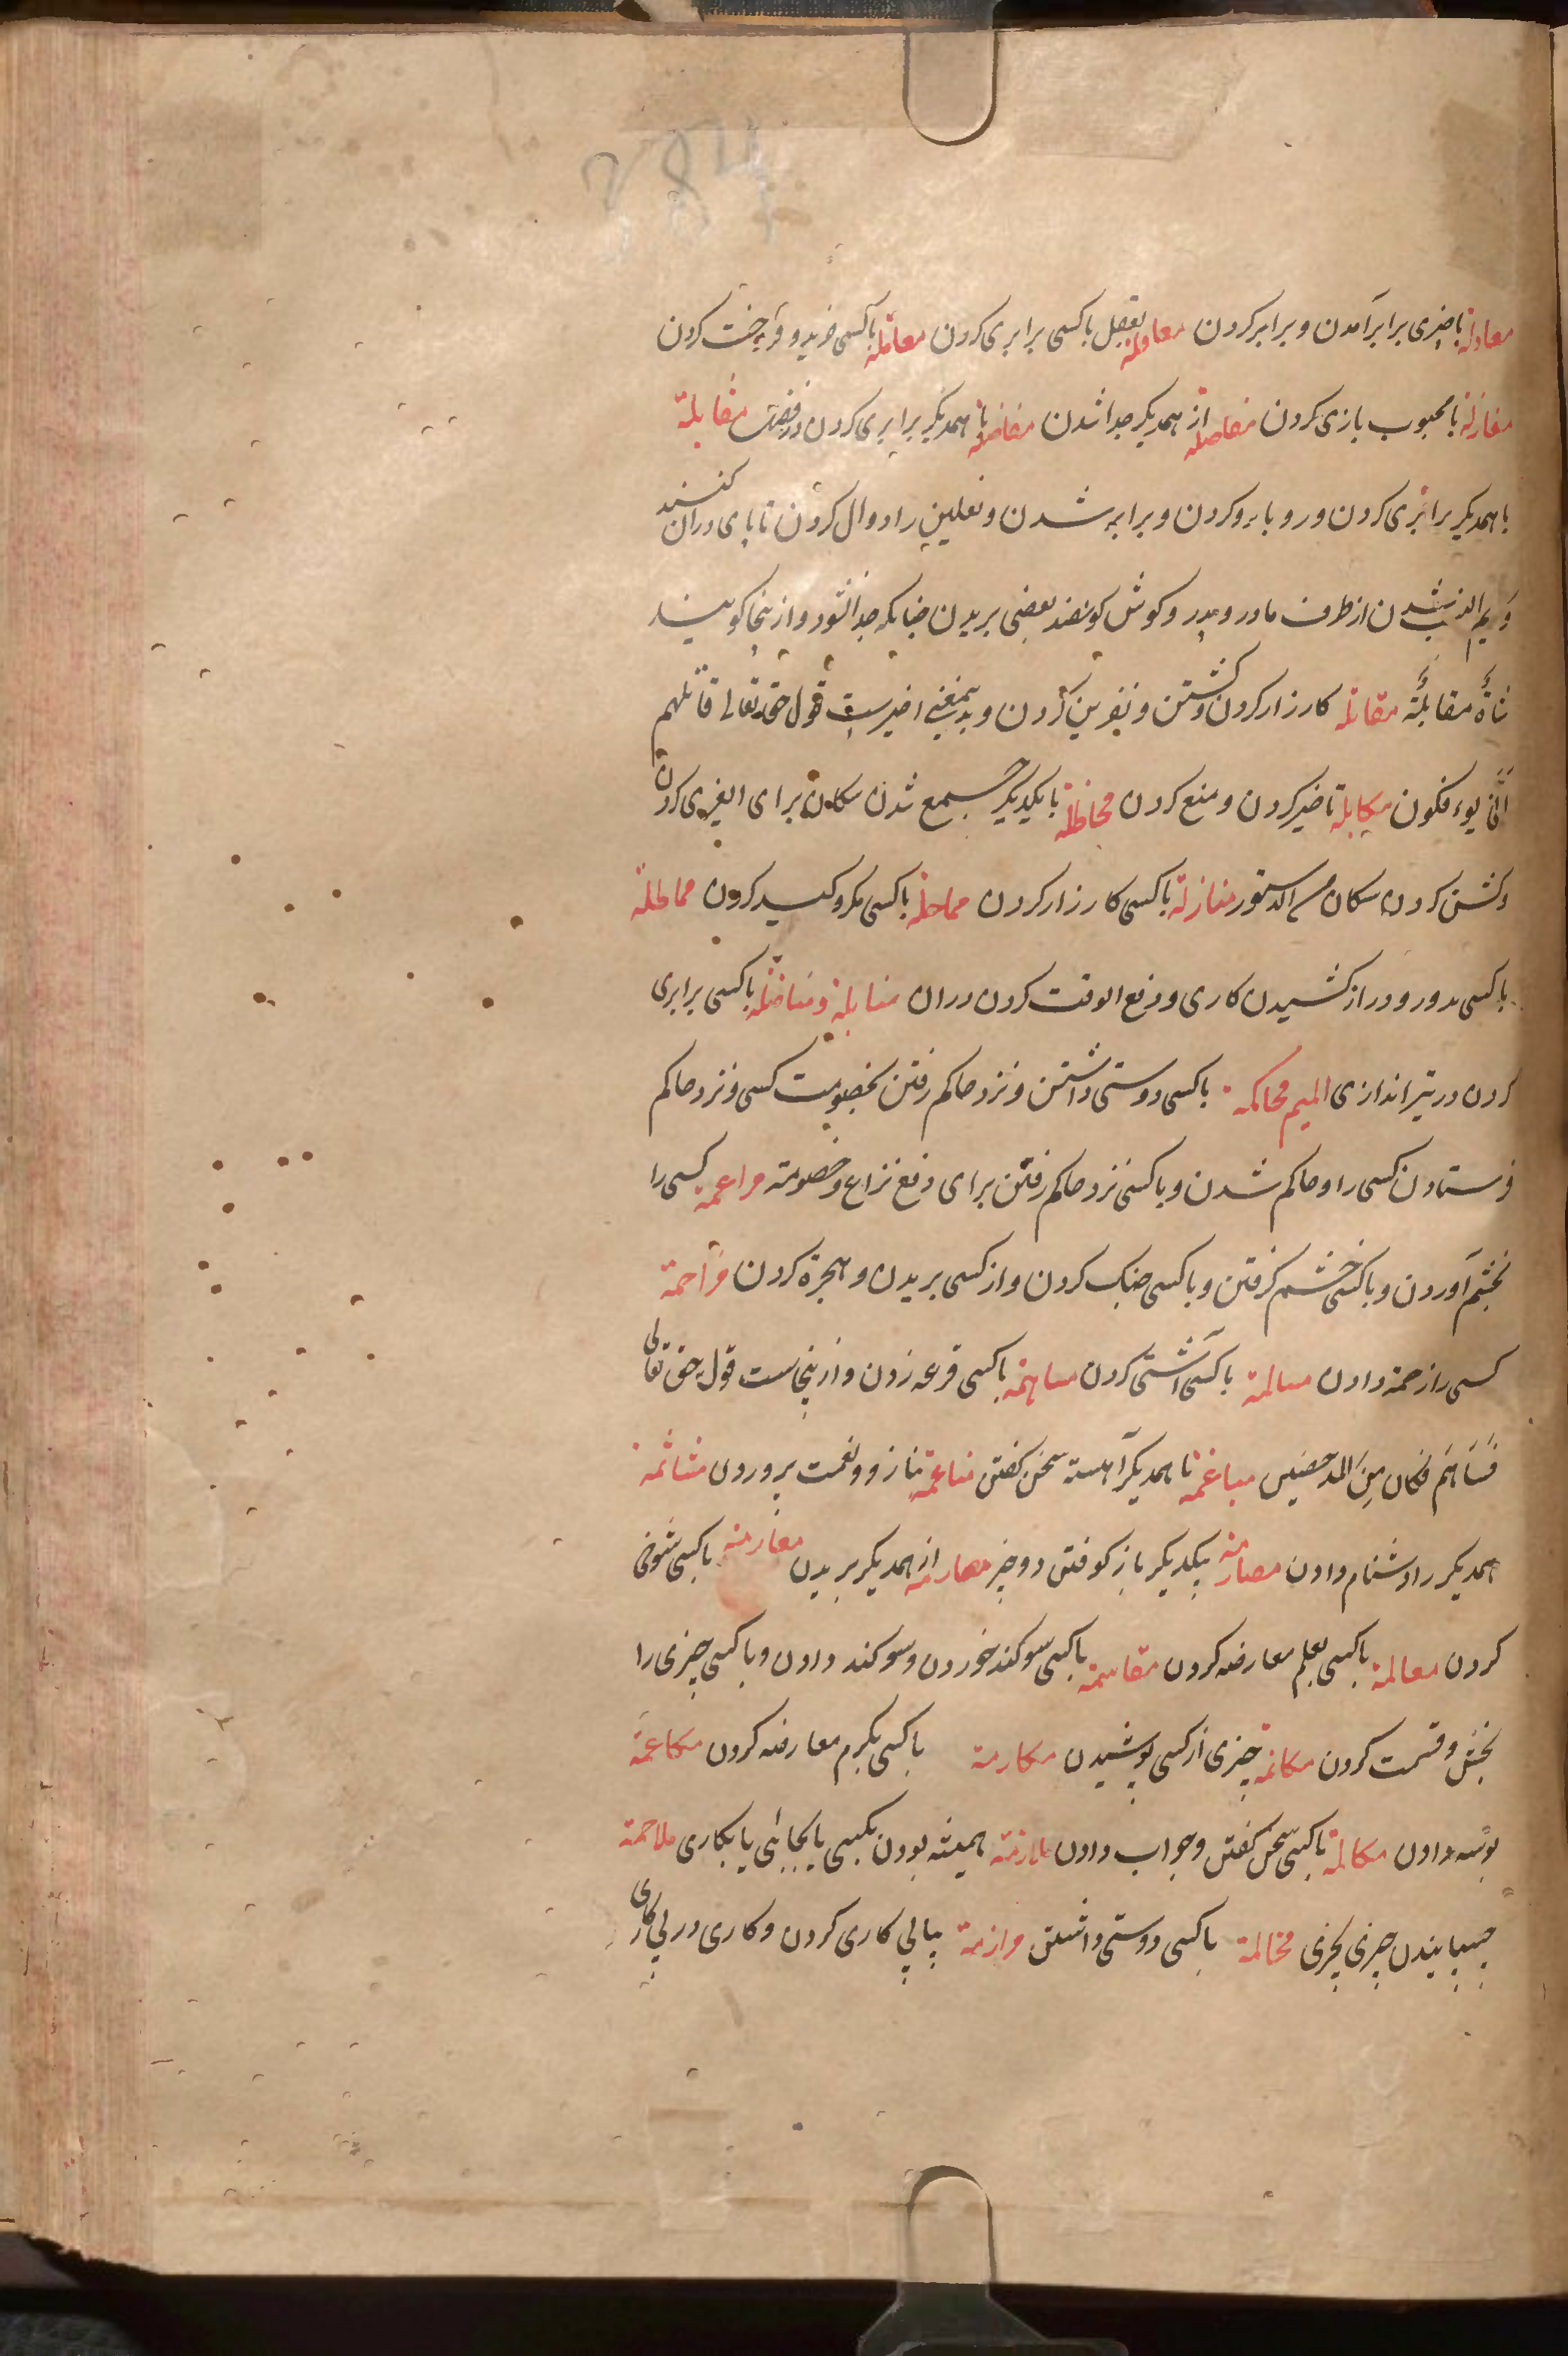 معادلة با چیزی برابر آمدن و برابر کردن معاقلة بعقل با کسی برابری کردن معاملة با کسی خرید و فروخت کردن
مغازلة با محبوب بازی کردن مفاصلة از همدیکر جدا شدن مفاضلة با همدیکر برابری کردن در فضل مقابلة
با همدیکر برابری کردن و رو با رو کردن و برابر شدن و نعلین را دوال کردن تا پای دران کنند
و کریم النسب شدن از طرف مادر و پدر و کوش کوسفند بعضی بریدن چنانکه جدا نشود و ازینجا کویند
شاةٌ مقابلةٌ مقاتلة کارزار کردن و کشتن و نفرین کردن و بدینمعنی اخیرست قول حق تعالی قاتلهم
انّی یوءفکون مکابلة تاخیر کردن و منع کردن محاظلة با یکدیکر جمع شدن سکان برای
و کشن کردن سکان منازلة با کسی کارزار کردن مماحلة با کسی مکر و کید کردن مماطلة
با کسی بدور و دراز کشیدن کاری و دفع الوقت کردن دران منابلة و مناضلة با کسی برابری
کردن در تیر اندازی المیم محاکمة با کسی دوستی داشتن و نزد حاکم رفتن بخصومت کسی و نزد حاکم
فرستادن کسی را و حاکم شدن و با کسی نزد حاکم رفتن برای دفع نزاع و خصومة مراغمة کسی را
بخشم آوردن و با کسی خشم کرفتن و با کسی جنک کردن و از کسی بریدن و هجرة کردن مزاحمة
کسی را زحمة دادن مسالمة با کسی آشتی کردن مساهمة با کسی قرعه زدن و ازینجاست قول حق تعالی
فساهم فکان من المدحضین مباغمة با همدیکر آهسته سخن کفتن مناعمة بناز و نعمت پروردن مشاتمة
همدیکر را دشنام دادن مصادمة بیکدیکر باز کوفتن دو چیز مصارمة از همدیکر بریدن معارمة با کسی شوخی
کردن معالمة با کسی بعلم معارضه کردن مقاسمة با کسی سوکند خوردن و سوکند دادن و با کسی چیزی را
بخش و قسمت کردن مکاتمة چیزی از کسی پوشیدن مکارمة با کسی بکرم معارضه کردن مکاعمة
بوسه دادن مکالمة با کسی سخن کفتن و جواب دادن ملازمة همیشه بودن بکسی یا بجائی یا بکاری ملاحمة
چسپانیدن چیزی بچیزی مخالمة با کسی دوستی داشتن مرازمة پیاپی کاری کردن و کاری در پی کاری